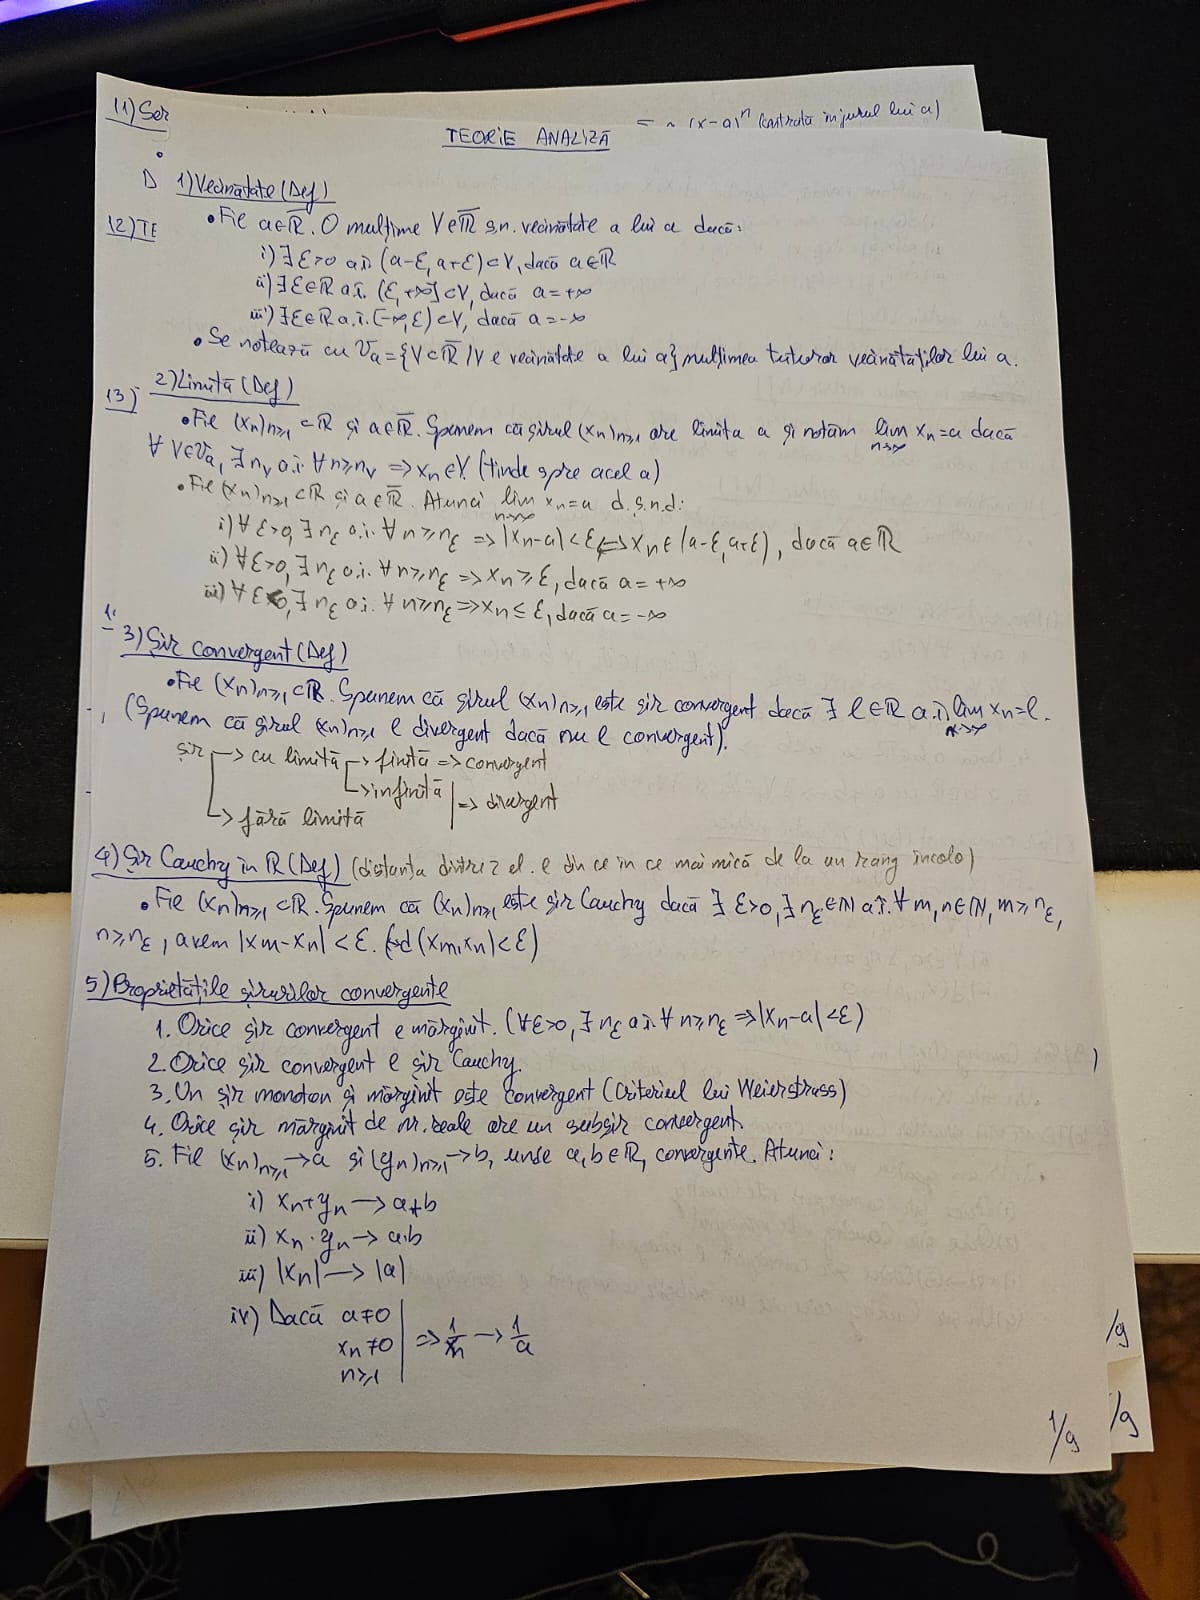 11) Ser
= (x-a)ⁿ (centrată în jurul lui a)
TEORIE ANALIZĂ
D
1) Vecinătate (Def)
12) TE
• Fie a∈R̅. O mulțime V∈R̅ s.n. vecinătate a lui a dacă:
i) ∃ε>0 a.î. (a-ε, a+ε)⊂V, dacă a∈ℝ
ii) ∃ε∈ℝ a.î. (ε, +∞]⊂V, dacă a=+∞
iii) ∃ε∈ℝ a.î. [-∞, ε)⊂V, dacă a=-∞
• Se notează cu 𝒱a={V⊂R̅ / V e vecinătate a lui a} mulțimea tuturor vecinătăților lui a.
13)
2) Limită (Def)
• Fie (xn)n≥1 ⊂ℝ și a∈R̅. Spunem că șirul (xn)n≥1 are limita a și notăm lim n→∞ xn=a dacă
∀ V∈𝒱a, ∃ nv a.î. ∀n≥nv => xn∈V. (tinde spre acel a)
• Fie (xn)n≥1 ⊂ℝ și a∈R̅. Atunci lim n→∞ xn=a d.ș.n.d:
i) ∀ε>0, ∃ nε a.î. ∀n≥nε => |xn-a|<ε <=> xn∈(a-ε, a+ε), dacă a∈ℝ
ii) ∀ε>0, ∃ nε a.î. ∀n≥nε => xn≥ε, dacă a=+∞
iii) ∀ε<0, ∃ nε a.î. ∀n≥nε => xn≤ε, dacă a=-∞
3) Șir convergent (Def)
• Fie (xn)n≥1 ⊂ℝ. Spunem că șirul (xn)n≥1 este șir convergent dacă ∃ l∈ℝ a.î. lim n→∞ xn=l.
(Spunem că șirul (xn)n≥1 e divergent dacă nu e convergent).
șir → cu limită → finită => convergent
→ infinită | => divergent
→ fără limită
4) Șir Cauchy în ℝ (Def) (distanța dintre 2 el. e din ce în ce mai mică de la un rang încolo)
• Fie (xn)n≥1 ⊂ℝ. Spunem că (xn)n≥1 este șir Cauchy dacă ∃ ε>0, ∃ nε∈ℕ a.î. ∀ m,n∈ℕ, m≥nε,
n≥nε, avem |xm-xn|<ε. (→d(xm,xn)<ε)
5) Proprietățile șirurilor convergente
1. Orice șir convergent e mărginit. (∀ε>0, ∃ nε a.î. ∀n≥nε => |xn-a|<ε)
2. Orice șir convergent e șir Cauchy.
3. Un șir monoton și mărginit este convergent (Criteriul lui Weierstrass)
4. Orice șir mărginit de nr. reale are un subșir convergent.
5. Fie (xn)n≥1→a și (yn)n≥1→b, unde a,b∈ℝ, convergente. Atunci:
i) xn+yn → a+b
ii) xn·yn → a·b
iii) |xn| → |a|
iv) Dacă a≠0
xn≠0 | => 1/xn → 1/a
n≥1
/9
/9
1/9